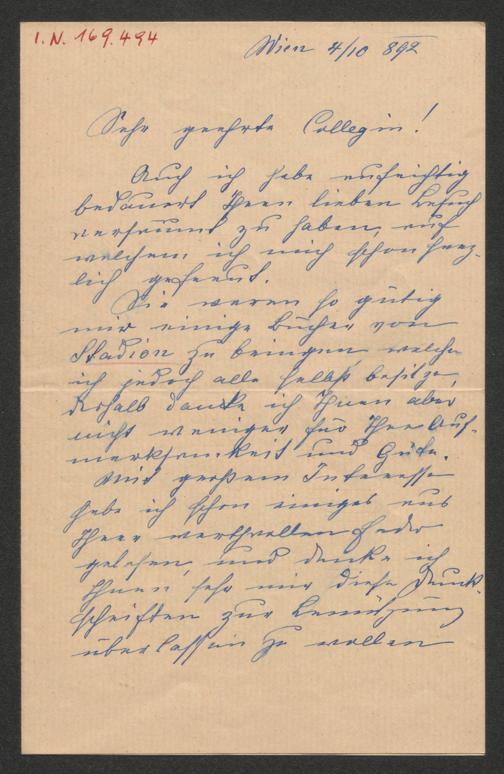 I.N. 169.494
Wien 4/10 892
Sehr geehrte Collegin!
Auch ich habe aufrichtig
bedauert Ihren lieben Besuch
versäumt zu haben, auf
welchem ich mich schon herz-
lich gefreut.
Sie waren so gütig
mir einige Bücher von
Stadion zu bringen welche
ich jedoch alle selbst besitze,
deshalb danke ich Ihnen aber
nicht weniger für Ihre Auf-
merksamkeit und Güte.
Mit großem Interesse
habe ich schon einiges aus
Ihrer werthvollen Feder
gelesen, und danke ich
Ihnen sehr mir diese Druck-
schriften zur Benützung
überlassen zu wollen